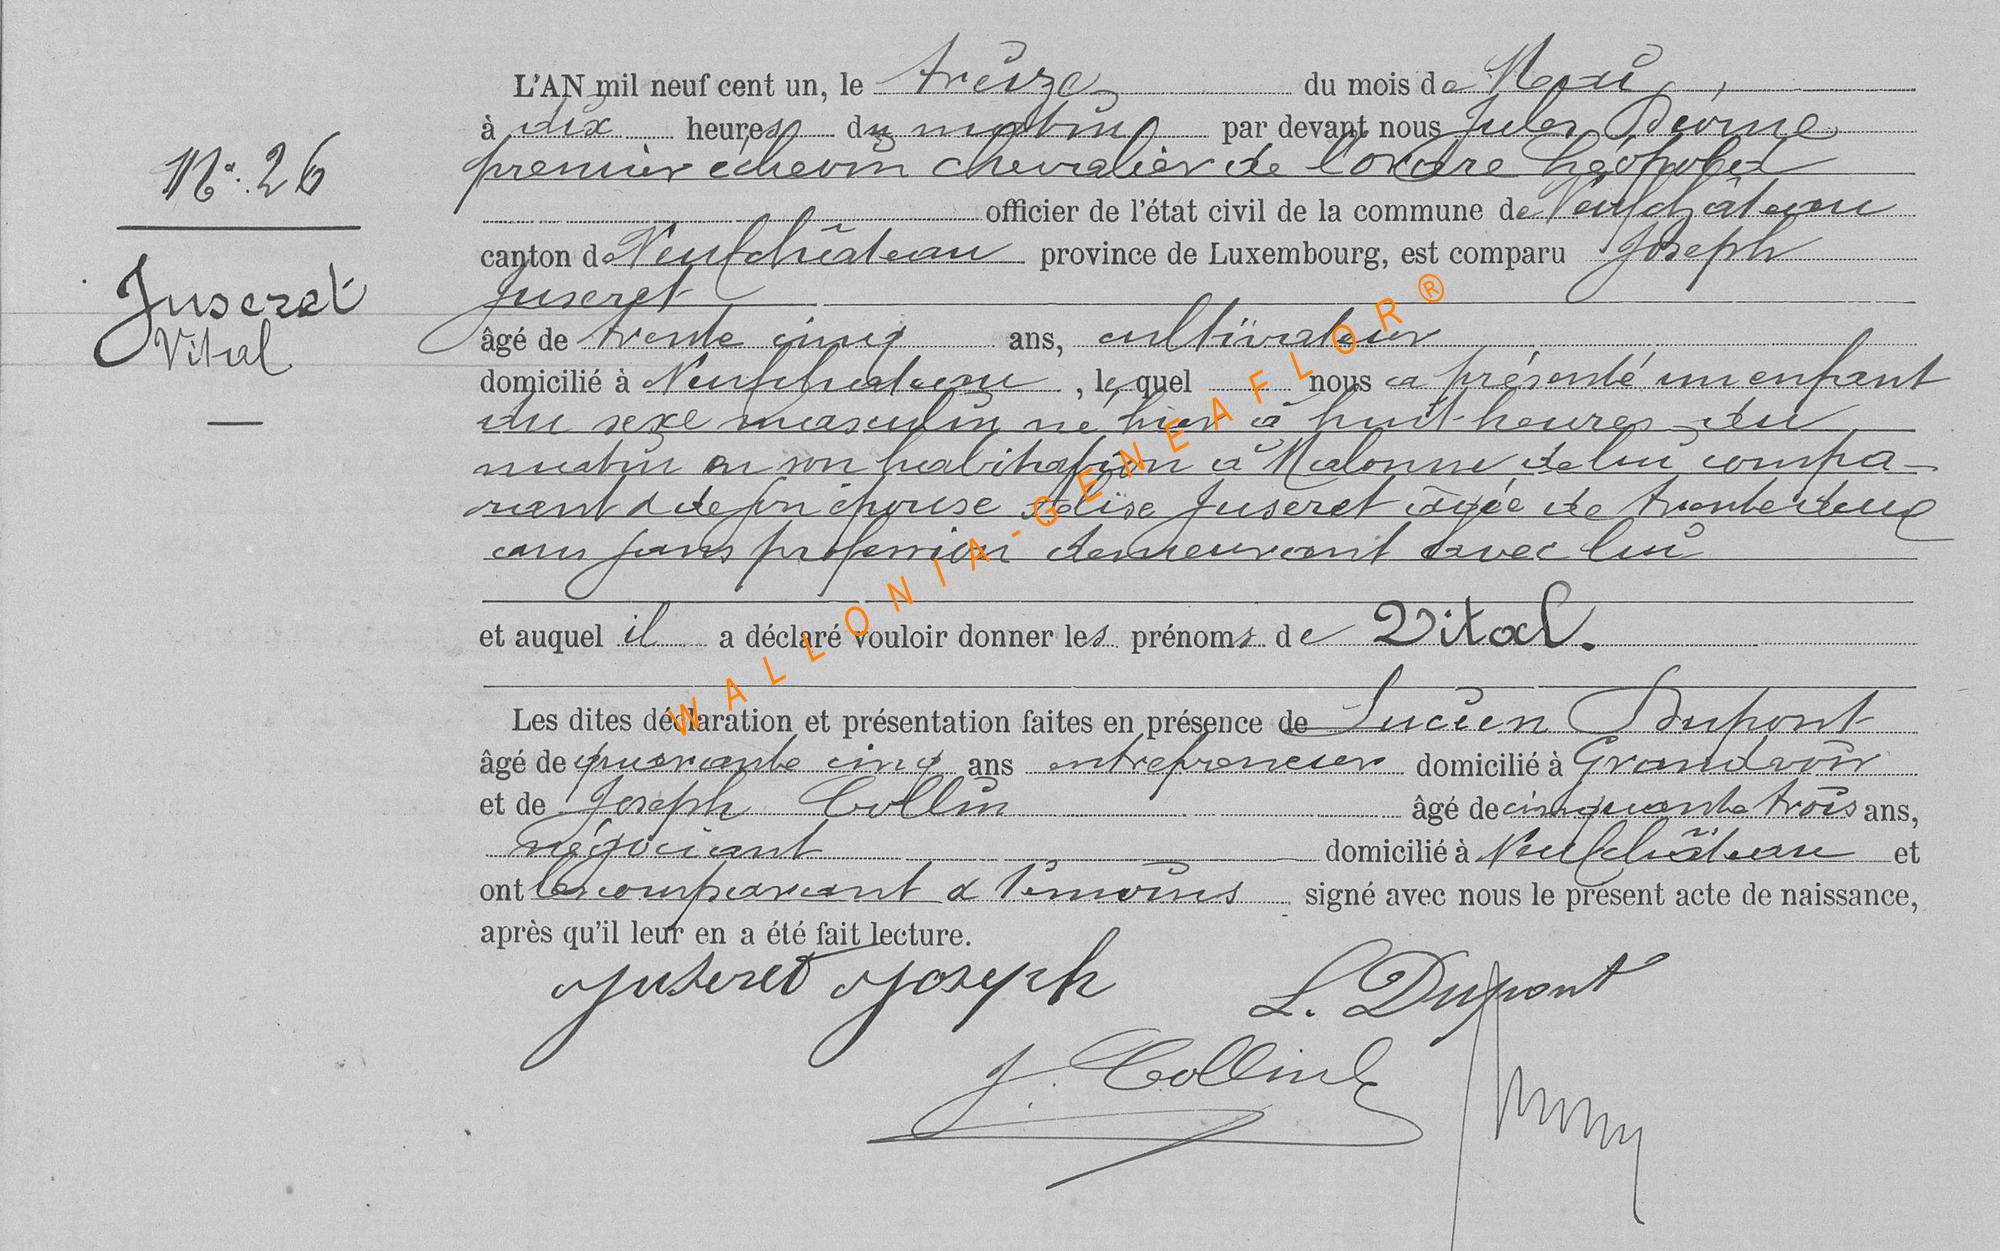 N° 26
Juseret
Vital
L'AN mil neuf cent un, le treize du mois de Mai,
à dix heures du matin par devant nous Jules
premier échevin chevalier de l'ordre Léopold
officier de l'état civil de la commune de Neufchâteau
canton de Neufchâteau province de Luxembourg, est comparu Joseph
Juseret
âgé de trente cinq ans, cultivateur
domicilié à Neufchateau, lequel nous a présenté un enfant
du sexe masculin né hier à huit heures du
matin en son habitation à Malonne de lui compa-
rant & de son épouse Elise Juseret âgée de trente deux
ans sans profession demeurant avec lui
et auquel il a déclaré vouloir donner les prénoms de Vital.
Les dites déclaration et présentation faites en présence de Lucien Dupont
âgé de quarante cinq ans entrepreneur domicilié à Grandvoir
et de Joseph Collin âgé de cinquante trois ans,
négociant domicilié à Neufchâteau et
ont les comparant & témoins signé avec nous le présent acte de naissance,
après qu'il leur en a été fait lecture.
Juseret Joseph L. Dupont
J. Collin
WALLONIA-GENEAFLOR®